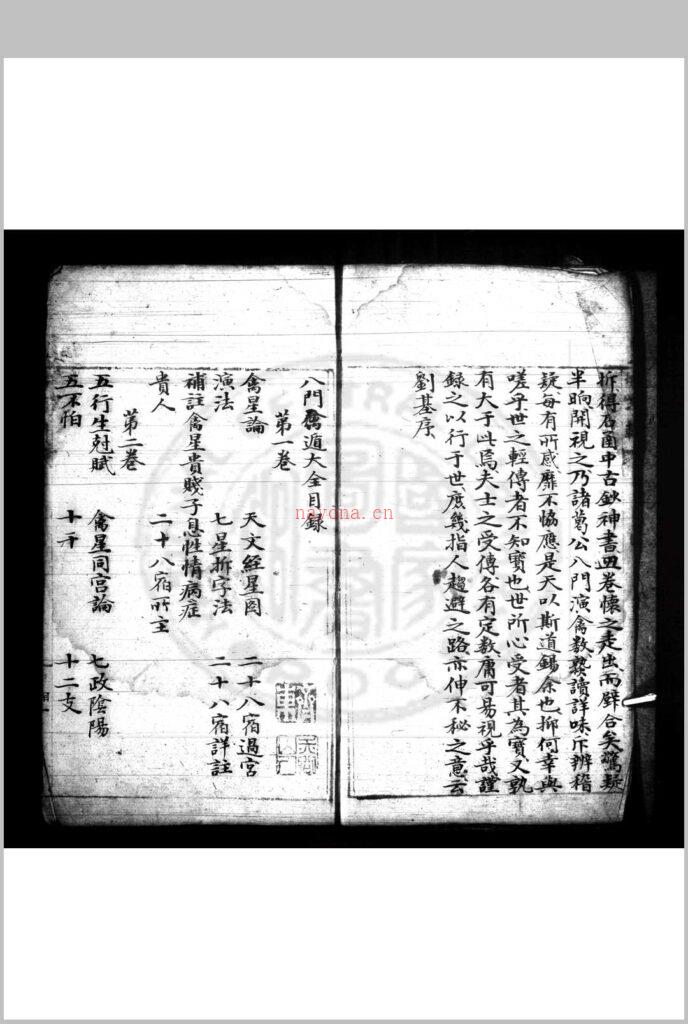 拆得石函中古鈔神書四卷懷之走出而壁合矣驚疑
半晌開視之乃諸葛公八門演禽数熟讀詳味斤辨稽
疑每有所感靡不恊應是天以斯道錫余也抑何幸與
嗟乎世之輕傳者不知寶也世所心受者其為寶又孰
有大于此焉夫士之受傳各有定数庸可易視乎哉謹
録之以行于世庻幾指人趨避之路亦伸不秘之意云
劉基序
八門禽遁大全目録
第一卷
禽星論 天文經星圖 二十八宿過宮
演法 七星拆字法 二十八宿詳註
補註禽星貴賤子息性情病症
貴人 二十八宿所主
第二卷
五行生尅賦 禽星同宮論 七政隂陽
五不怕 十干 十二支
nayona.cn